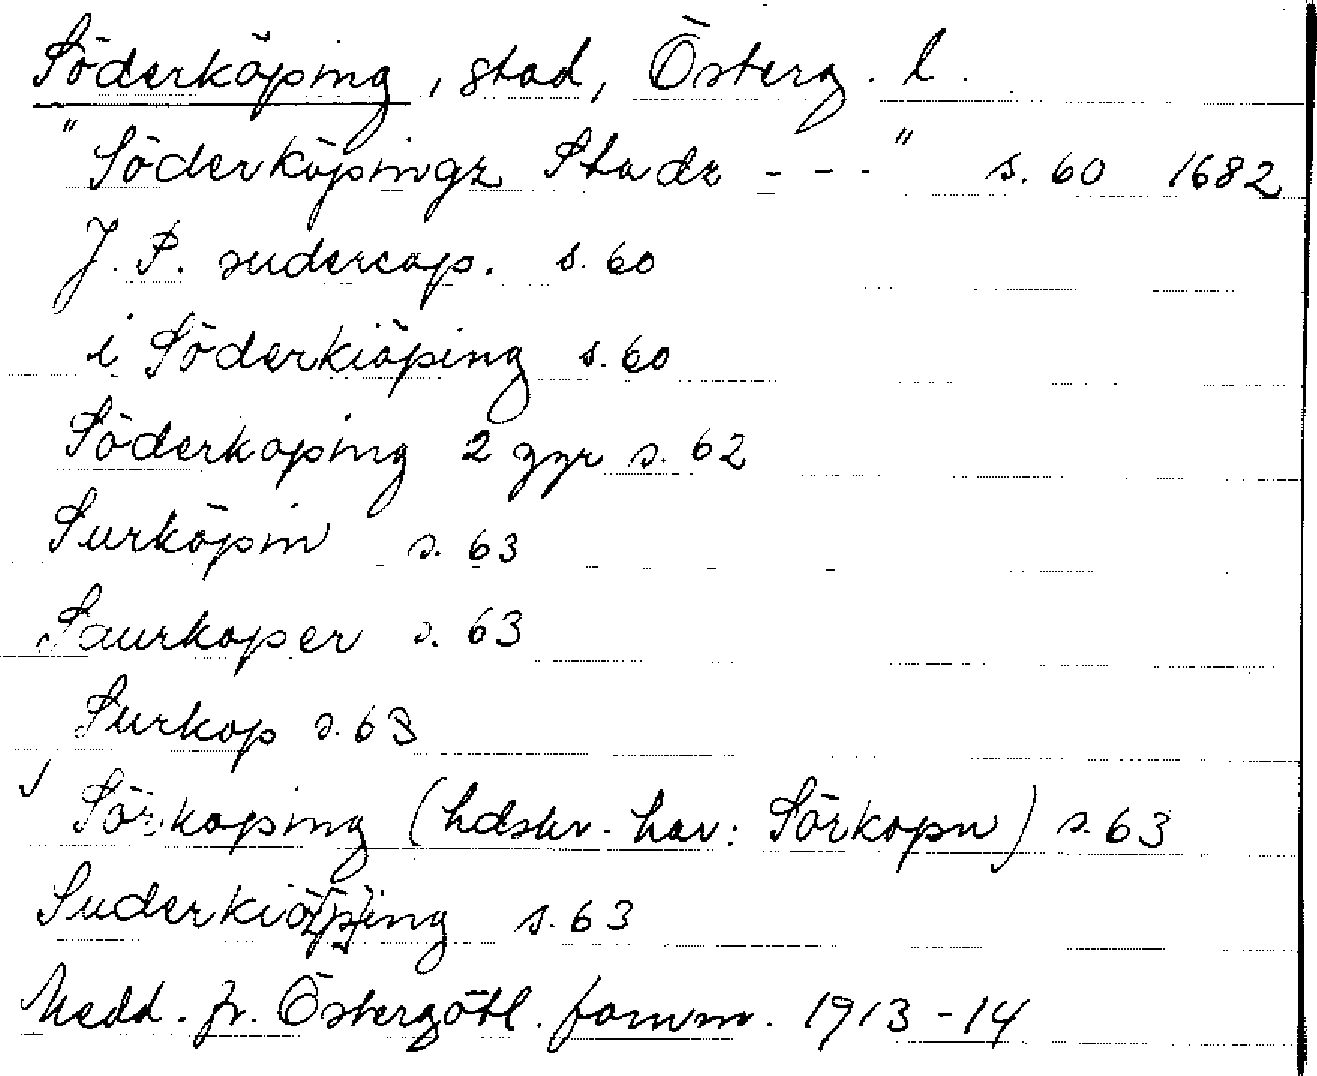 Söderköping, stad, Österg. l.
"Söderköpingz Stadz - - - " s. 60 1682
J. P. sudercop. s. 60
i Söderkiöping s. 60
Söderkoping 2 ggr s. 62
Surköpin s. 63
Saurkoper s. 63
Surkop s. 63
√ Sörkoping (hdskr. har: Sörkopn) s. 63
Suderkiö[p]ing s. 63
Medd. fr. Östergötl. fornm. 1913-14